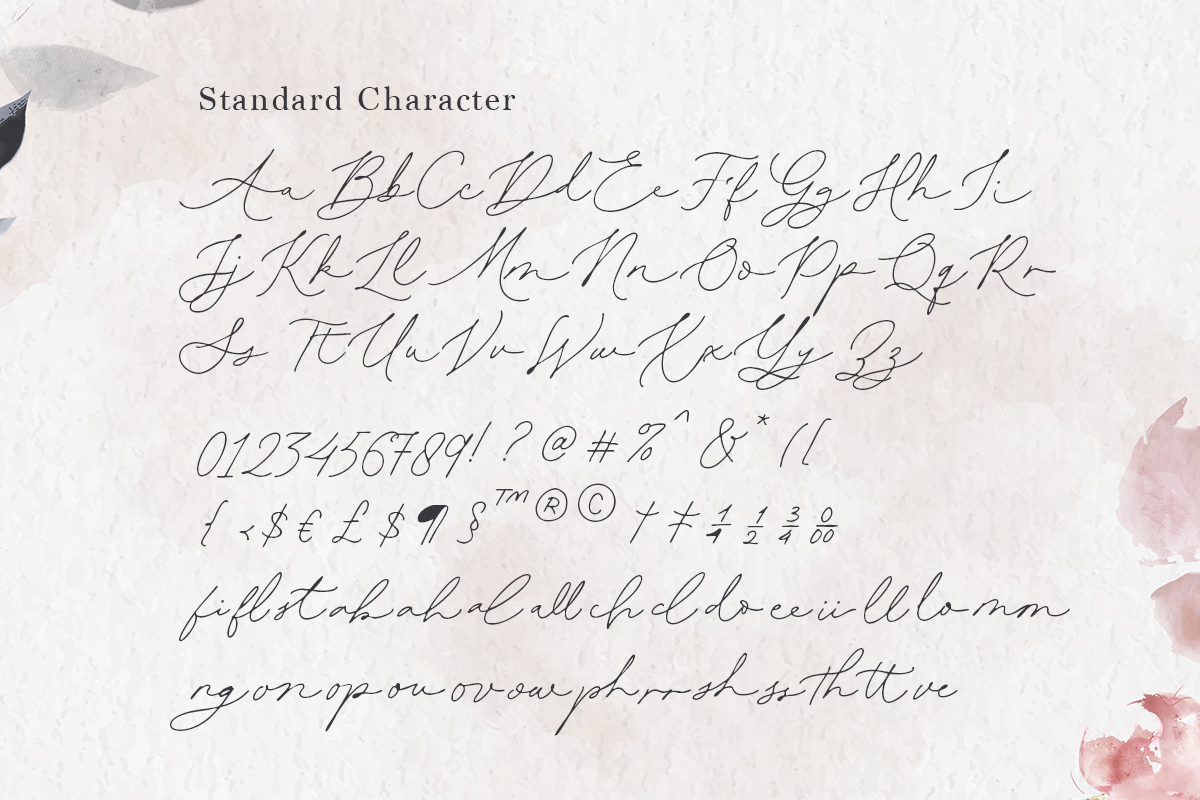 Standard Character
Aa Bb Cc Dd Ee Ff Gg Hh Ii
Jj Kk Ll Mm Nn Oo Pp Qq Rr
Ss Tt Uu Vv Ww Xx Yy Zz
0123456789! ? @ # % ^ & * ( [
{ < $ € £ $ ¶ § ™ ® © † ‡ ¼ ½ ¾ 0/00
fi fl st ab ah al all ch cl do ee ii ll lo mm
ng on op ou ov ow ph rr sh ss th tt ve